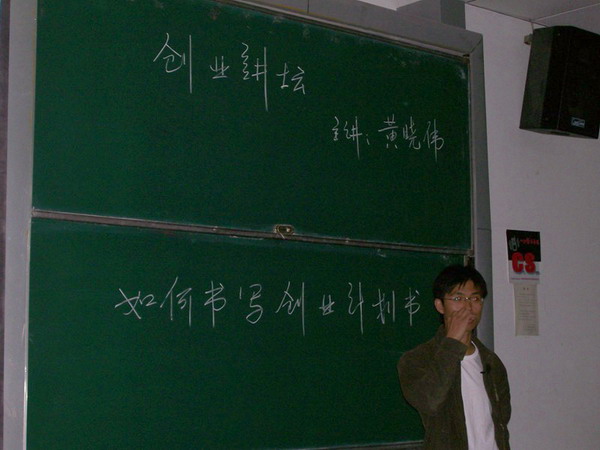 创业讲坛
主讲：黄晓伟
如何书写创业计划书
CS